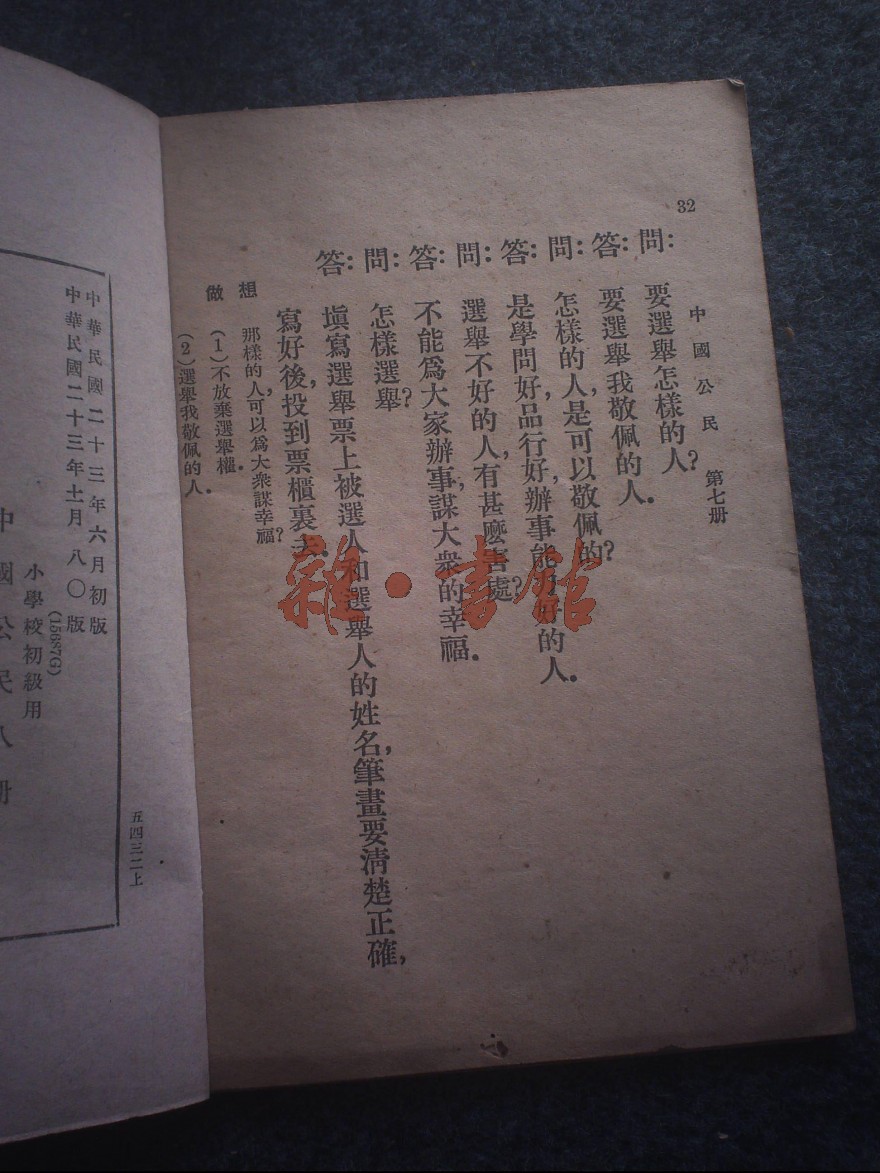 32
中國公民　第七册
問：要選舉怎樣的人？
答：要選舉我敬佩的人．
問：怎樣的人，是可以敬佩的？
答：是學問好，品行好，辦事能力好的人．
問：選舉不好的人，有甚麽害處？
答：不能爲大家辦事，謀大衆的幸福．
問：怎樣選舉？
答：塡寫選舉票上被選人和選舉人的姓名，筆畫要淸楚正確，
寫好後，投到票櫃裏去．
想　那樣的人，可以爲大衆謀幸福？
做　（1）不放棄選舉權．
（2）選舉我敬佩的人．
雜·書館
五四三二上
中華民國二十三年六月初版
中華民國二十三年十一月八〇版
(15687G)
小學校初級用
中國公民八册